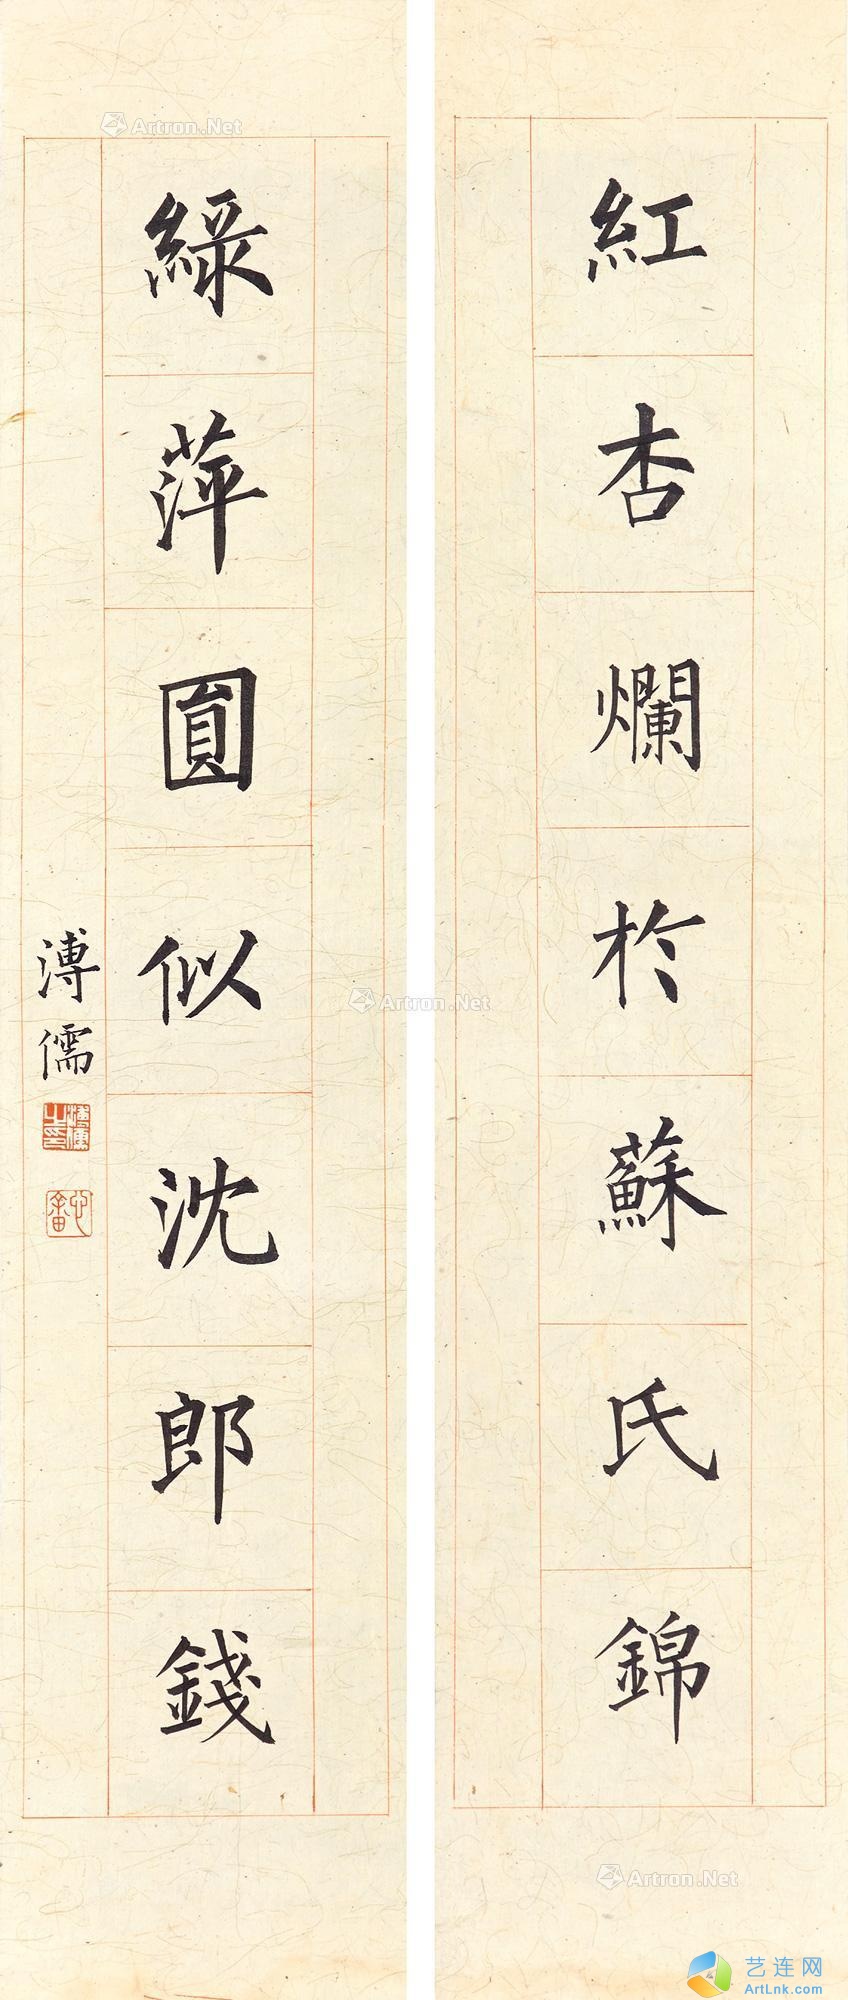 紅杏爛於蘇氏錦
綠萍圓似沈郎錢
溥儒
溥儒之印
心畬
Artron.Net
Artron.Net
Artron.Net
艺连网
ArtLnk.com